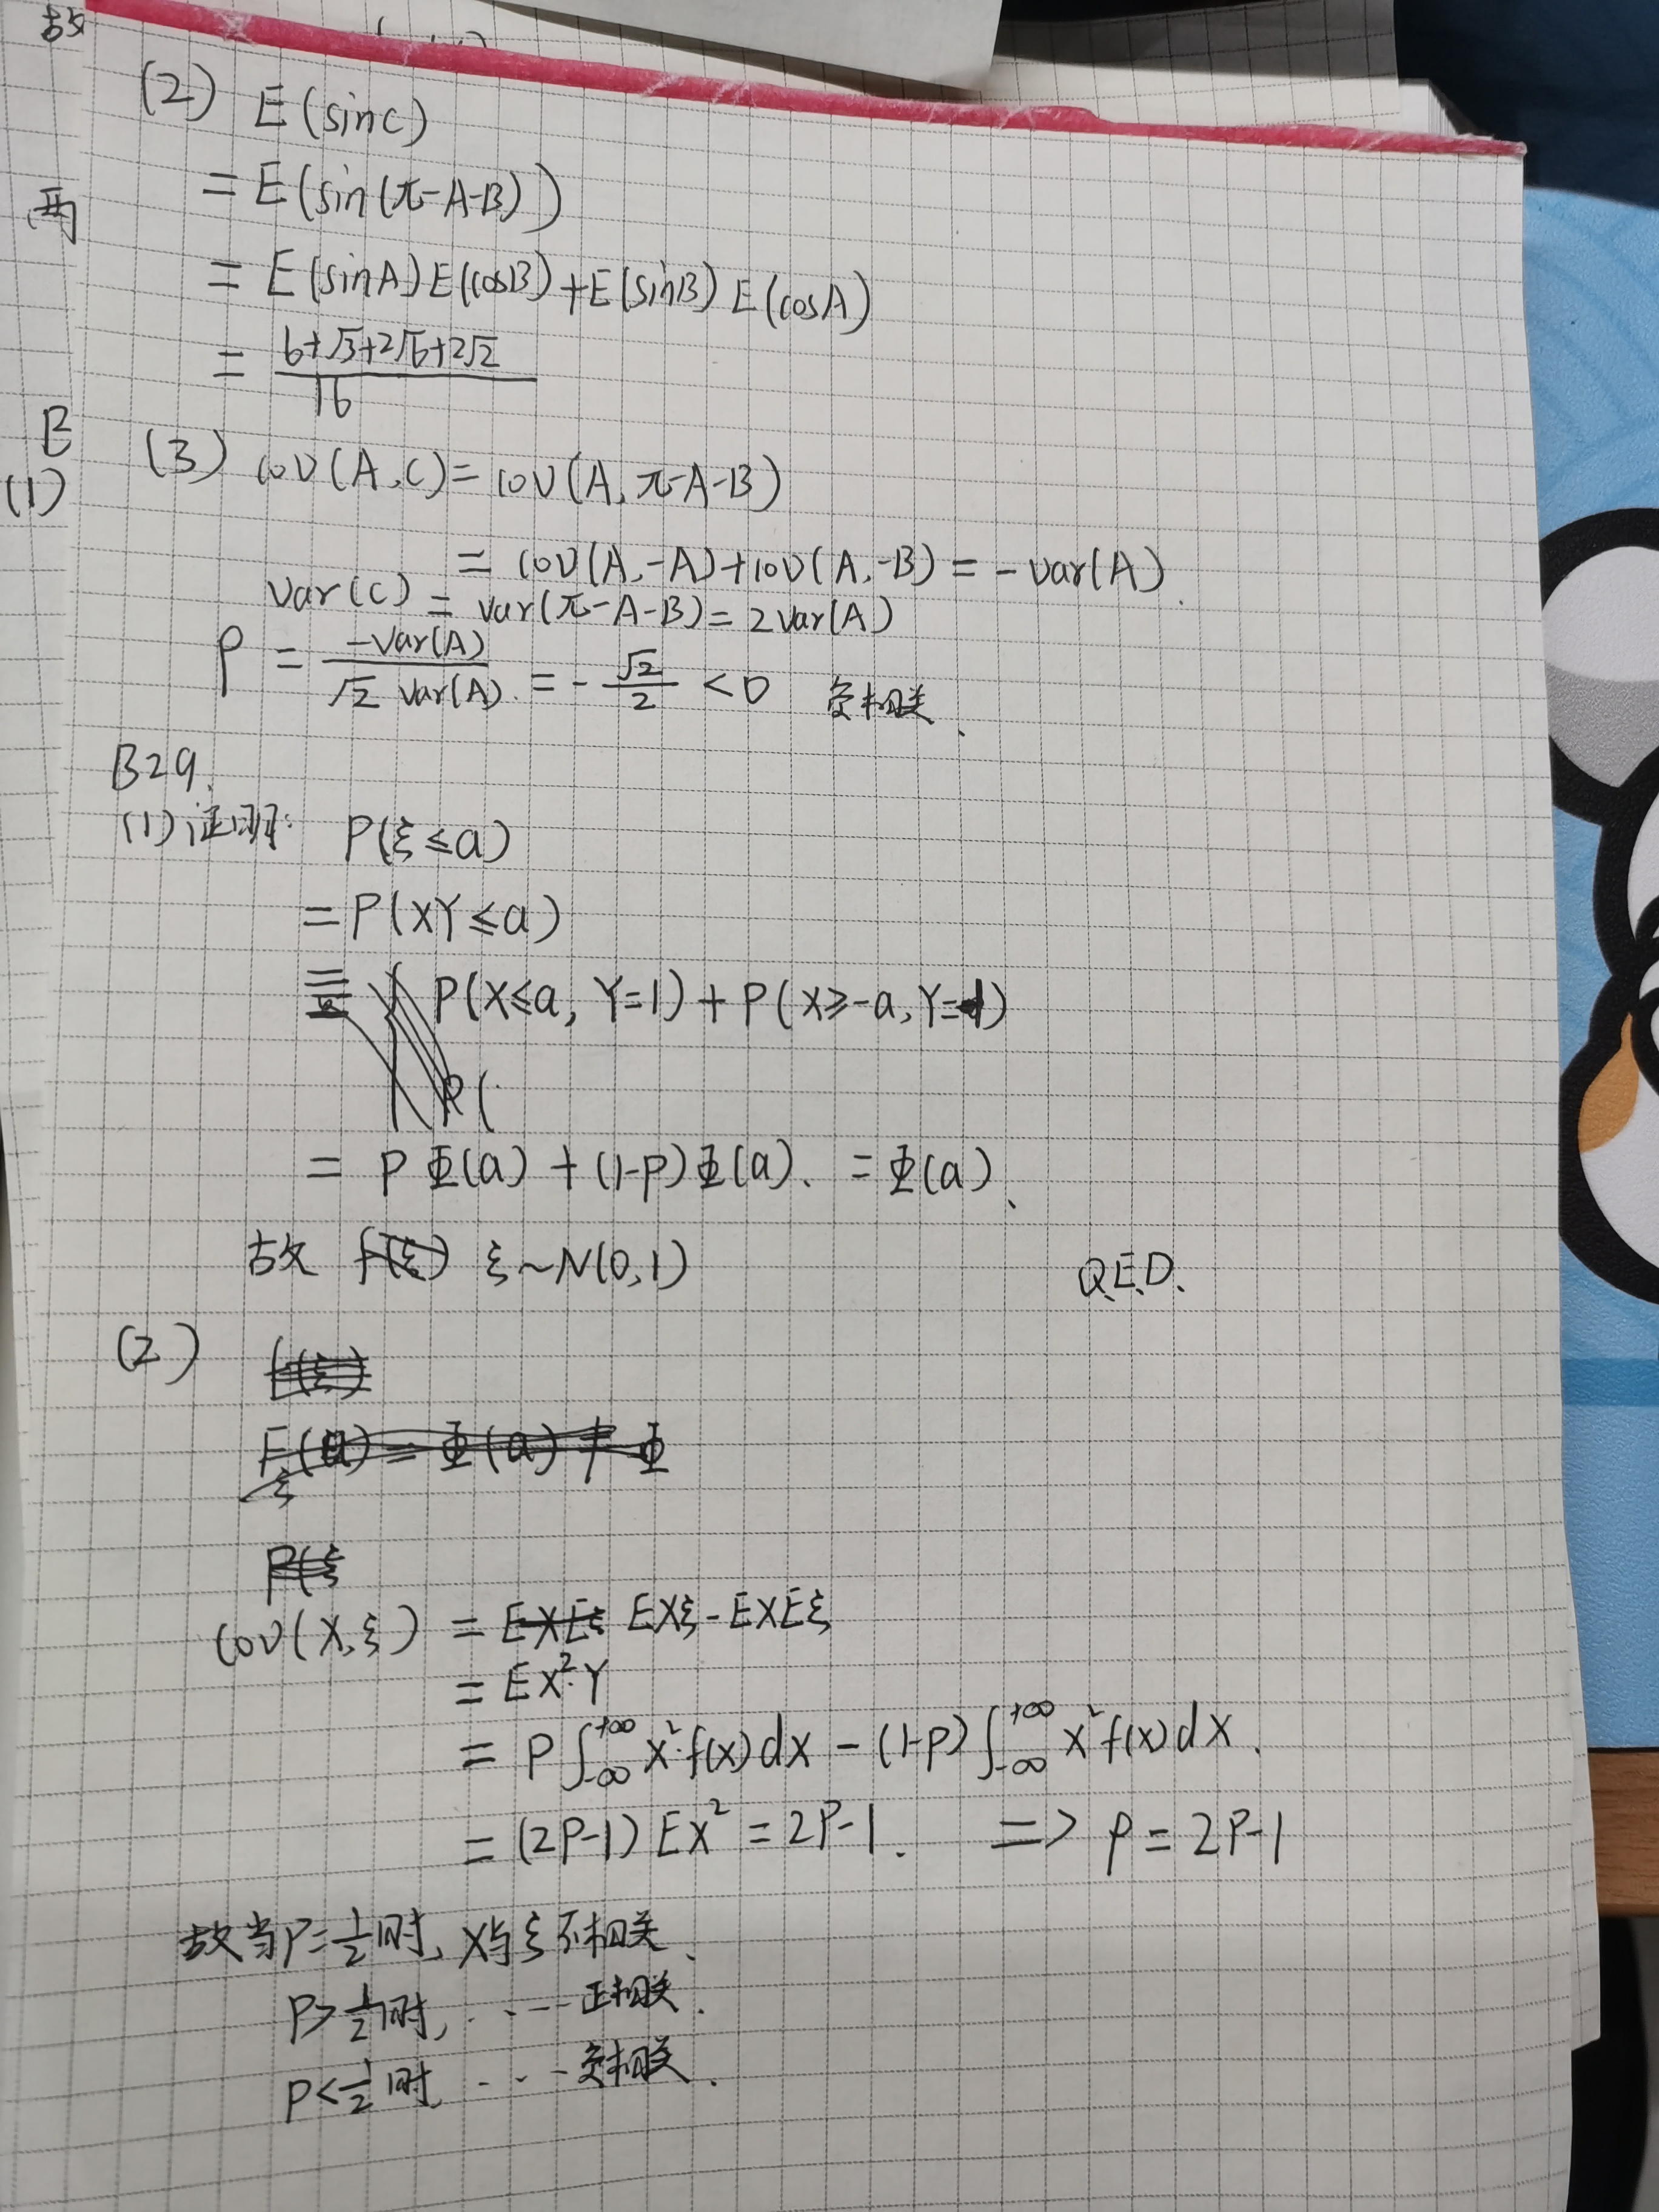 故
两
B
(1)
(2) E(sinC)
= E(sin(π-A-B))
= E(sinA)E(cosB)+E(sinB)E(cosA)
= \frac{6+√3+2√6+2√2}{16}
(3) cov(A,C)= cov(A,π-A-B)
= cov(A,-A)+cov(A,-B) = -var(A).
var(C) = var(π-A-B)= 2var(A)
ρ = \frac{-var(A)}{√2 var(A)} = -\frac{√2}{2} < 0 负相关.
B29.
(1)证明: P(ξ≤a)
= P(XY≤a)
= P(X≤a, Y=1) + P(X≥-a, Y=-1)
P(
= pΦ(a) + (1-p)Φ(a). = Φ(a).
故 f(ξ) ξ~N(0,1) Q.E.D.
(2)
F_ξ(a) = Φ(a) + Φ
P(ξ
cov(X,ξ) = EXEξ EXξ - EXEξ
= EX²·Y
= P∫_{-∞}^{+∞} x²·f(x)dx - (1-P)∫_{-∞}^{+∞} x²f(x)dx.
= (2P-1)EX² = 2P-1. => ρ = 2P-1
故当P=\frac{1}{2}时, X与ξ不相关.
P>\frac{1}{2}时, ····正相关.
P<\frac{1}{2}时, ····负相关.